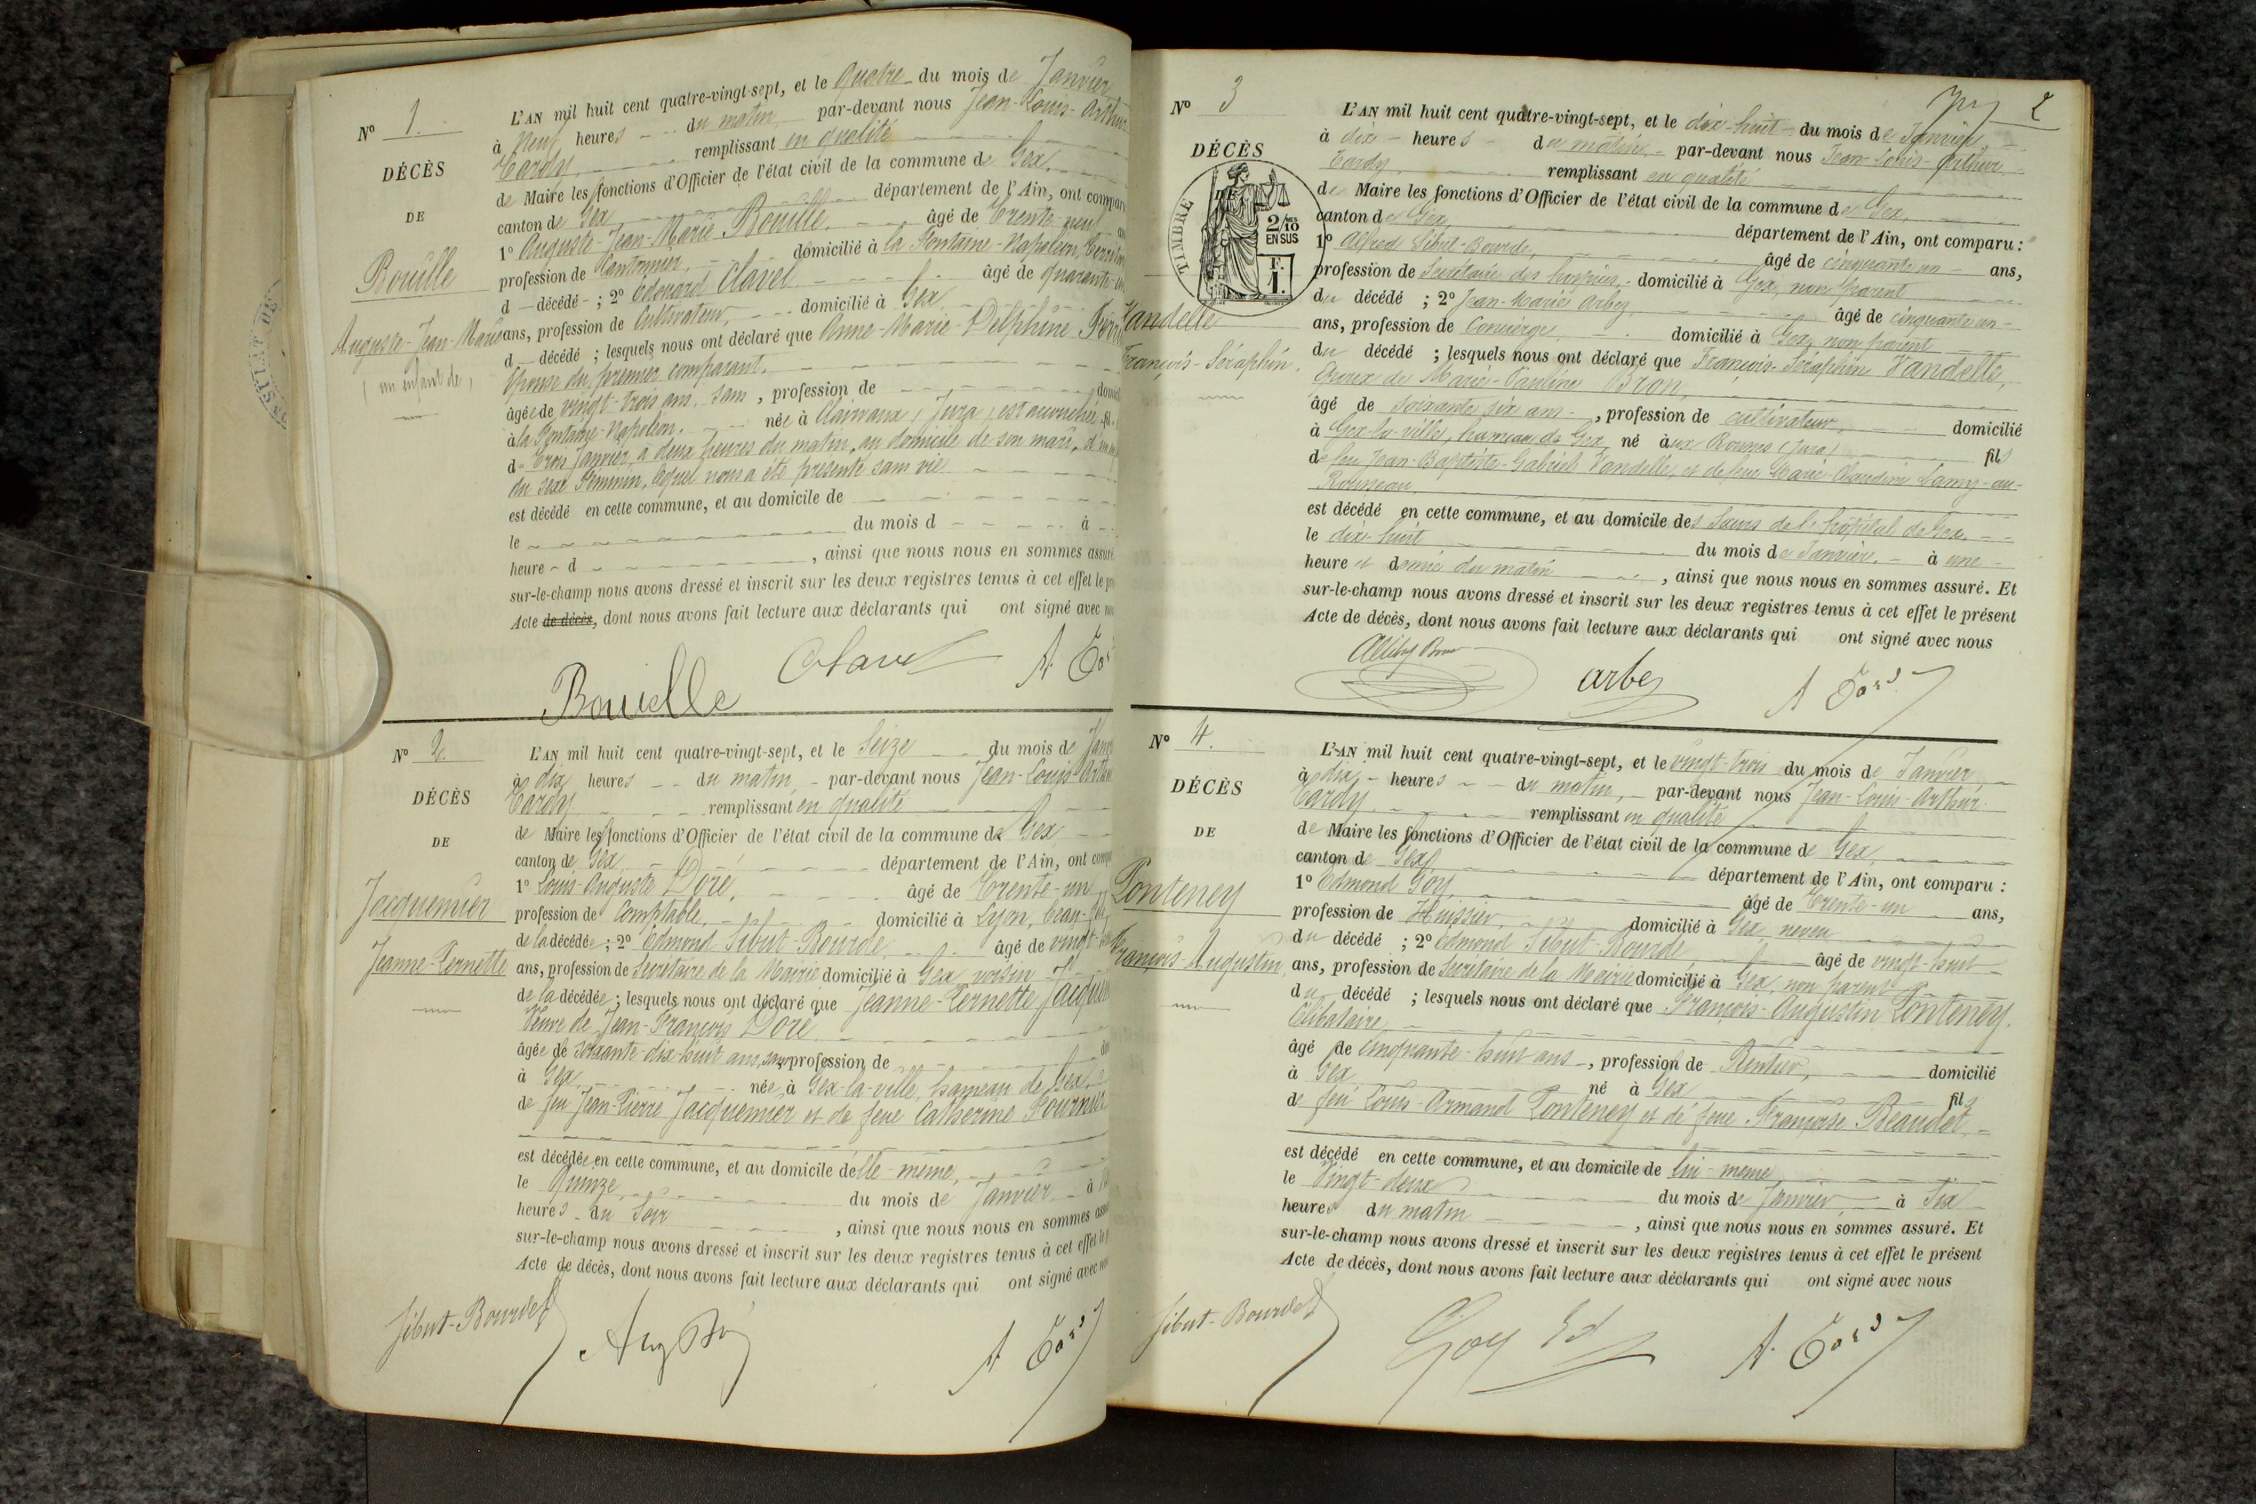 N° 1.
DÉCÈS
DE
Bouille
Auguste-Jean-Marie
(un enfant de)
L'AN mil huit cent quatre-vingt-sept, et le Quatre du mois de Janvier
à Neuf heures du matin par-devant nous Jean-Louis-Arthur
Tardy, remplissant en qualité
de Maire les fonctions d'Officier de l'état civil de la commune de Gex,
canton de Gex, département de l'Ain, ont comparu
1° Auguste-Jean-Marie Bouille, âgé de Trente-neuf
profession de Cantonnier, domicilié à la Fontaine-Napoléon,
d décédé ; 2° Edouard Clavel âgé de quarante
ans, profession de Cultivateur, domicilié à Gex
d décédé ; lesquels nous ont déclaré que Anne-Marie-Delphine
Epouse du premier comparant.
âgée de vingt-trois ans, sans, profession de
à la Fontaine-Napoléon, née à Clairvaux (Jura) est accouchée
de Trois Janvier, à deux heures du matin, au domicile de son mari, d'un
du sexe Féminin, lequel nous a été présenté sans vie
est décédé en cette commune, et au domicile de
le du mois d à
heure d , ainsi que nous nous en sommes assuré
sur-le-champ nous avons dressé et inscrit sur les deux registres tenus à cet effet le
Acte de décès, dont nous avons fait lecture aux déclarants qui ont signé avec
Bouille Clavel A.
N° 2.
DÉCÈS
DE
Jacquemier
Jeanne-Pernette
L'AN mil huit cent quatre-vingt-sept, et le Seize du mois de
à dix heures du matin, par-devant nous Jean-Louis-Arthur
Tardy remplissant en qualité
de Maire les fonctions d'Officier de l'état civil de la commune de Gex
canton de Gex département de l'Ain, ont
1° Louis-Auguste Doré, âgé de Trente-un
profession de Comptable, domicilié à Lyon, beau-fils
de la décédée ; 2° Edmond Sibut-Bourde, âgé de vingt-
ans, profession de Secrétaire de la Mairie domicilié à Gex, voisin
de la décédée ; lesquels nous ont déclaré que Jeanne-Pernette
Veuve de Jean-François Doré
âgée de soixante-dix-huit ans, sans profession de
à Gex née à Gex-la-ville, hameau de Gex,
de feu Jean-Pierre Jacquemier et de feue Catherine Fournier
est décédée en cette commune, et au domicile d'elle-même,
le Quinze du mois de Janvier à
heures du soir , ainsi que nous nous en sommes
sur-le-champ nous avons dressé et inscrit sur les deux registres tenus à cet effet
Acte de décès, dont nous avons fait lecture aux déclarants qui ont signé avec
Sibut-Bourde A.
2
N° 3
DÉCÈS
TIMBRE
2/10
EN SUS
F.
1.
Vandelle
François-Séraphin.
L'AN mil huit cent quatre-vingt-sept, et le dix-huit du mois de Janvier
à dix heures du matin, par-devant nous Jean-Louis-Arthur
Tardy, remplissant en qualité
de Maire les fonctions d'Officier de l'état civil de la commune de Gex,
canton de Gex, département de l'Ain, ont comparu :
1° Alfred Sibut-Bourde, âgé de cinquante-un ans,
profession de Secrétaire des hospices, domicilié à Gex, non parent
du décédé ; 2° Jean-Marie Arbez, âgé de cinquante-un
ans, profession de Concierge, domicilié à Gex, non parent
du décédé ; lesquels nous ont déclaré que François-Séraphin Vandelle,
Epoux de Marie-Pauline
âgé de soixante-six ans, profession de cultivateur domicilié
à Gex-la-ville, hameau de Gex, né aux Rousses (Jura) fils
de feu Jean-Baptiste-Gabriel Vandelle, et de feue Marie-Claudine Lamy-au-
Rousseau
est décédé en cette commune, et au domicile des Sœurs de l'hôpital de Gex.
le dix-huit du mois de Janvier, à une
heure et demie du matin , ainsi que nous nous en sommes assuré. Et
sur-le-champ nous avons dressé et inscrit sur les deux registres tenus à cet effet le présent
Acte de décès, dont nous avons fait lecture aux déclarants qui ont signé avec nous
arbez A
N° 4.
DÉCÈS
DE
Ponteney
François-Augustin
L'AN mil huit cent quatre-vingt-sept, et le vingt-trois du mois de Janvier
à dix heures du matin, par-devant nous Jean-Louis-Arthur
Tardy remplissant en qualité
de Maire les fonctions d'Officier de l'état civil de la commune de Gex,
canton de Gex département de l'Ain, ont comparu :
1° Edmond Goy âgé de Trente-un ans,
profession de Huissier, domicilié à Gex, neveu
du décédé ; 2° Edmond Sibut-Bourde, âgé de vingt-huit
ans, profession de Secrétaire de la Mairie domicilié à Gex, non parent
du décédé ; lesquels nous ont déclaré que François-Augustin Ponteney,
Célibataire,
âgé de cinquante-huit ans, profession de Rentier, domicilié
à Gex né à Gex fils
de feu Louis-Armand Ponteney et de feue Françoise Beaudet,
est décédé en cette commune, et au domicile de lui-même
le Vingt-deux du mois de Janvier à Six
heures du matin , ainsi que nous nous en sommes assuré. Et
sur-le-champ nous avons dressé et inscrit sur les deux registres tenus à cet effet le présent
Acte de décès, dont nous avons fait lecture aux déclarants qui ont signé avec nous
Sibut-Bourde Goy Ed A.